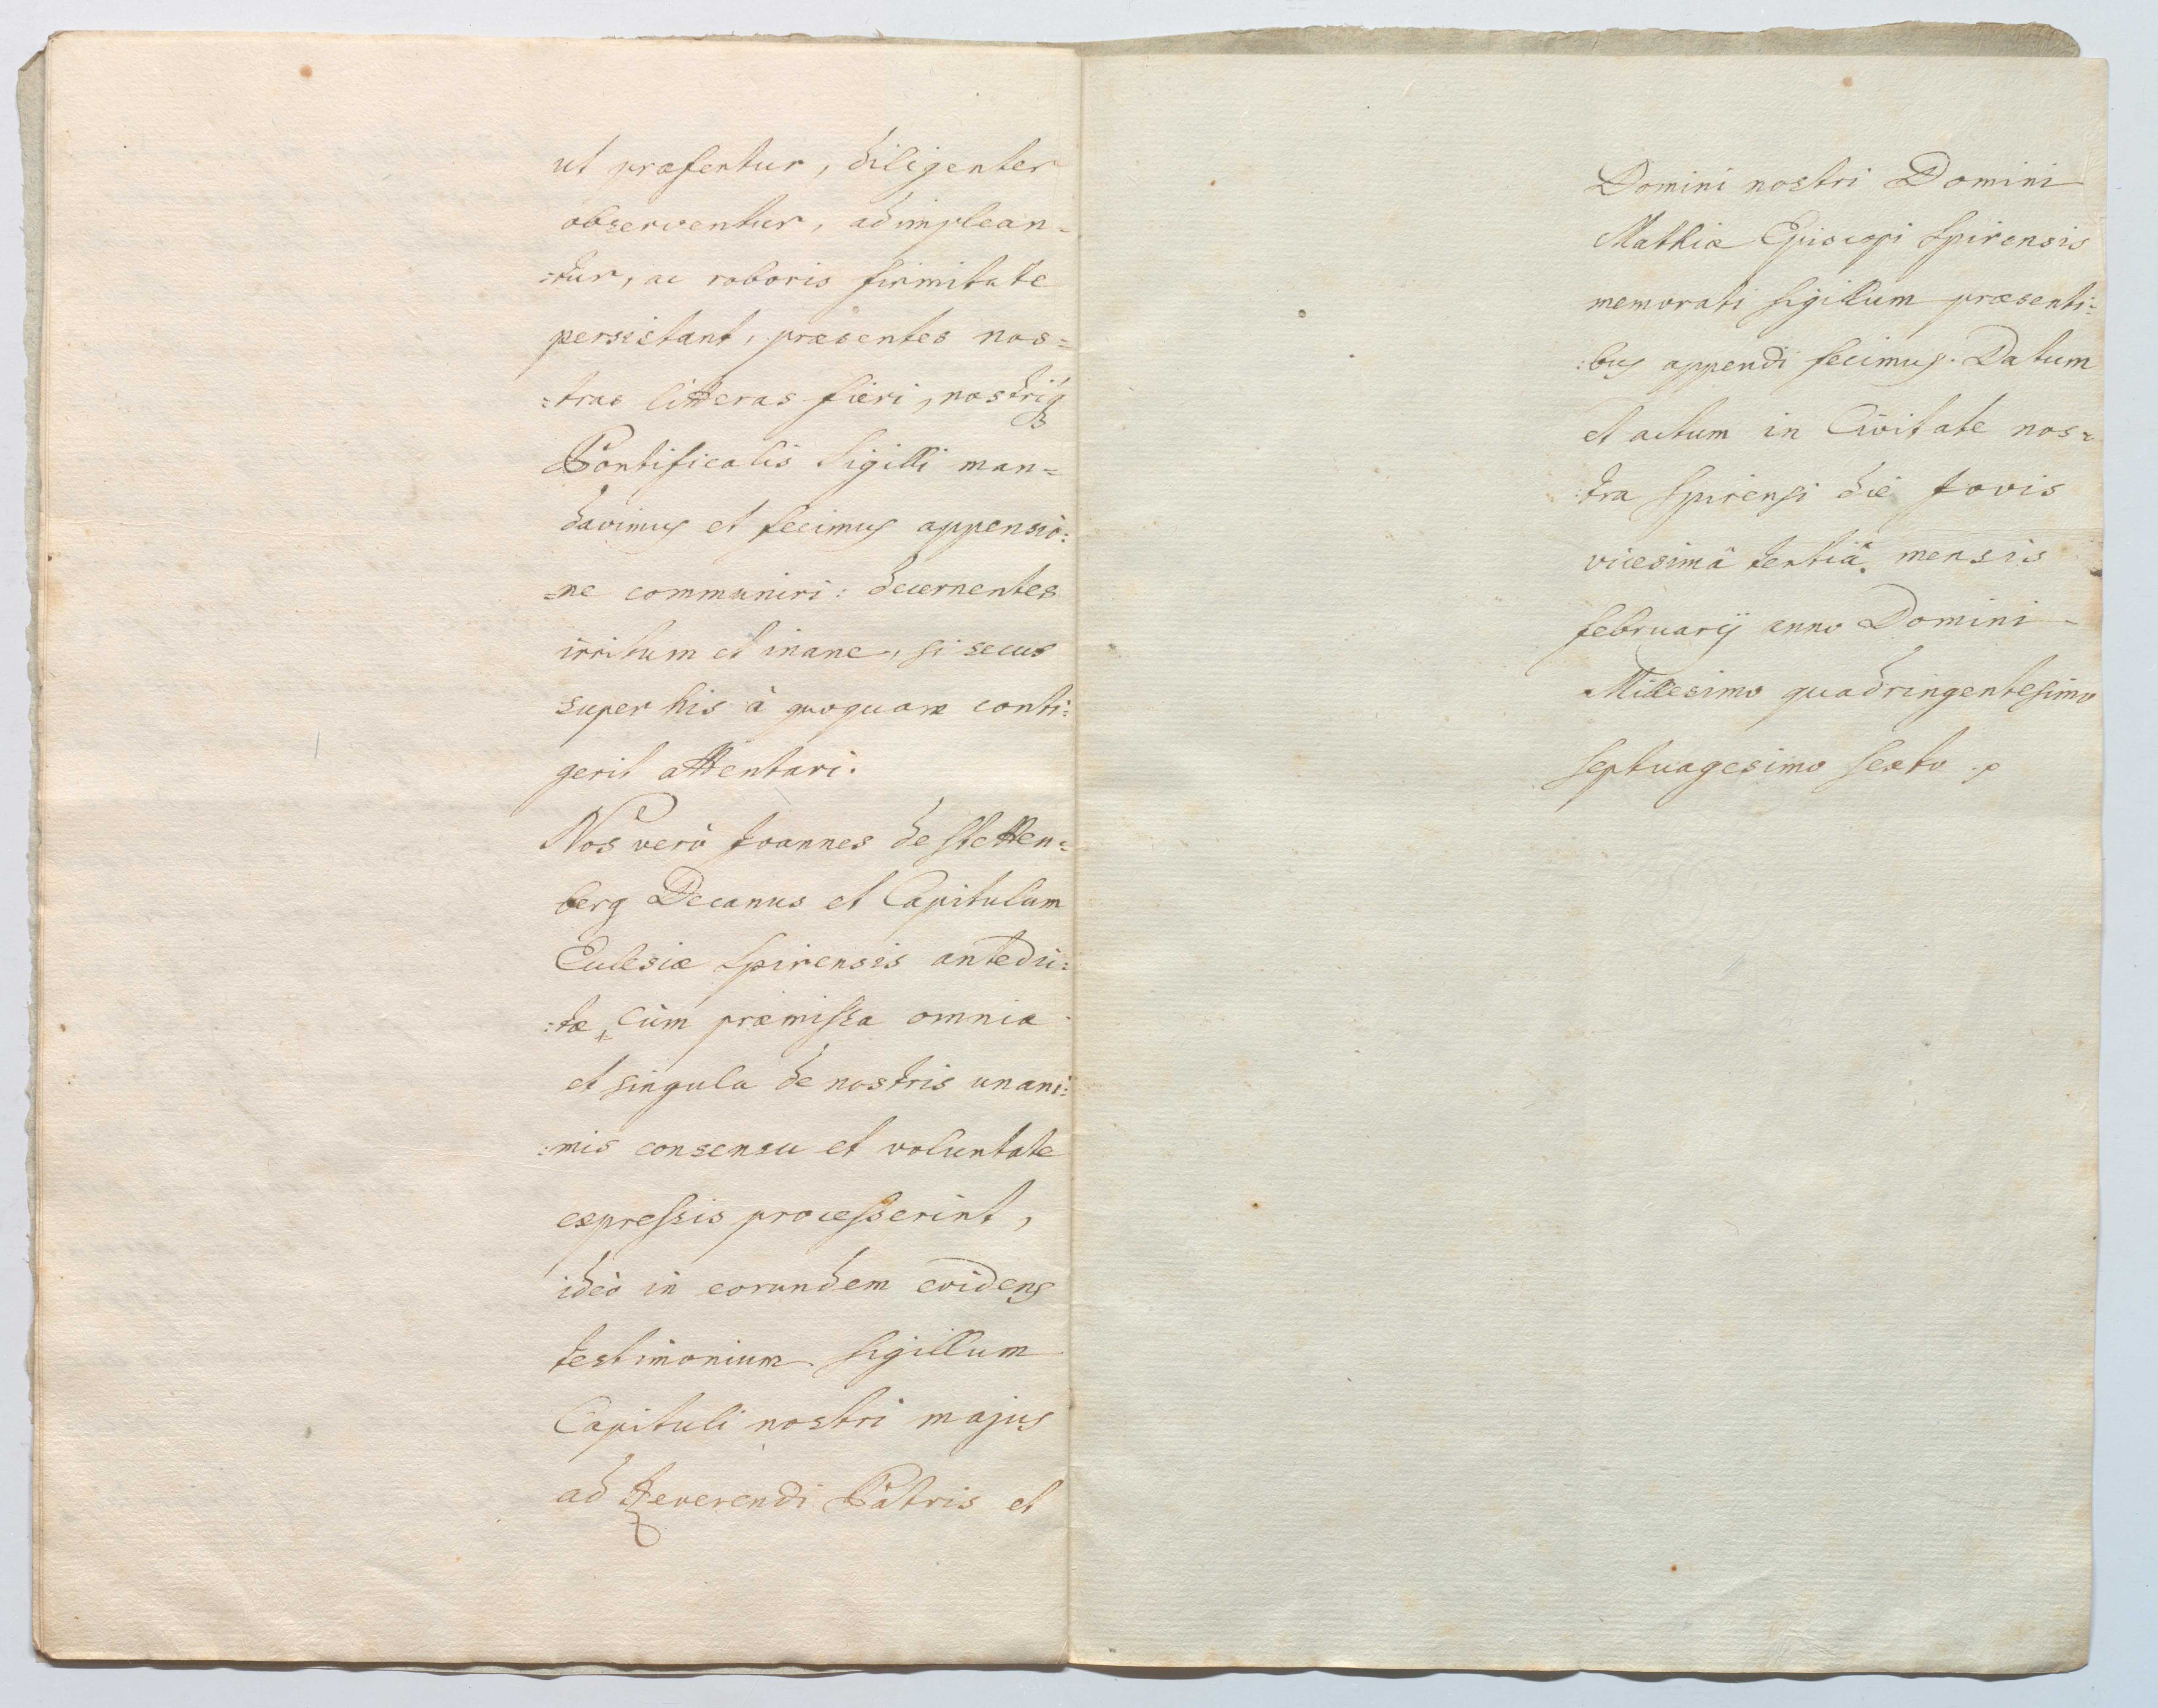 ut præsentur, diligenter
observentur, adimplean=
:tur, ac roboris firmitate
persistant, præsentes nos=
=tras litteras fieri, nostriq́ꝫ
Pontificalis Sigilli man=
davimus et fecimus appensio:
=ne communiri: decernentes
irritum et inane, si secus
super his à quoquam conti:
gerit attentari.
Nos verò Joannes de Stetten=
berg Decanus et Capitulum
Ecclesiæ Spirensis antedic:
:tæ, cùm præmissa omnia
et singula de nostris unani:
:mis consensu et voluntate
expressis processerint,
ideò in eorundem evidens
testimonium sigillum
Capituli nostri majus
ad Reverendi Patris et
Domini nostri Domini
Mathiæ Episcopi Spirensis
memorati sigillum præsenti:
:bus appendi fecimus. Datum
et actum in Civitate nos=
:tra Spirensi die Jovis
vicesimâ tertiâ mensis
februarij anno Domini
Millesimo quadringentesimo
septuagesimo sexto